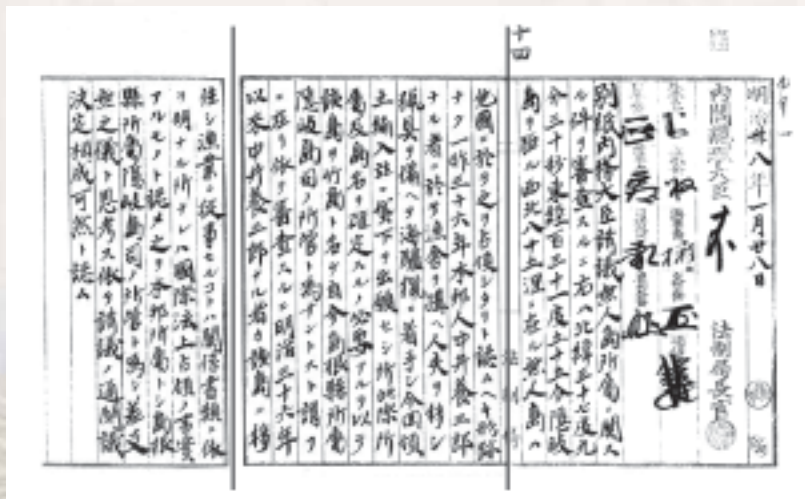 明治卅八年一月廿八日
内閣總理大臣
法制局長官
別紙内務大臣請議無人島所属ニ関ス
ル件ヲ審査スルニ右ハ北緯三十七度九
分三十秒東經百三十一度五十五分隠岐
島ヲ距ル西北八十五浬ニ在ル無人島ハ
十四
他國ニ於テ之ヲ占領シタリト認ムヘキ形跡
ナク一昨三十六年本邦人中井養三郎
ナル者ニ於テ漁舎ヲ構ヘ人夫ヲ移シ
猟具ヲ備ヘテ海驢猟ニ着手シ今回領
土編入並ニ貸下ヲ出願セシ所此際所
属及島名ヲ確定スルノ必要アルヲ以テ
該島ヲ竹島ト名ケ自今島根縣所属
隠岐島司ノ所管ト為サントスト謂フ
ニ在リ依テ審査スルニ明治三十六年
以来中井養三郎ナル者カ該島ニ移
住シ漁業ニ従事セルコトハ関係書類ニ依
リ明ナル所ナレハ國際法上占領ノ事實
アルモノト認メ之ヲ本邦所属トシ島根
縣所属隠岐島司ノ所管ト為シ差支
無之儀ト思考ス依テ請議ノ通閣議
決定相成可然ト認ム